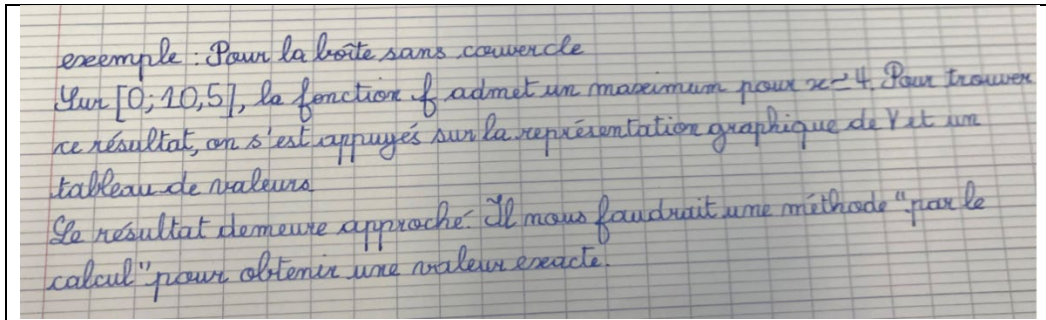 exemple : Pour la boîte sans couvercle
Sur [0; 10,5], la fonction f admet un maximum pour x = 4. Pour trouver
ce résultat, on s'est appuyés sur la représentation graphique de V et un
tableau de valeurs
Le résultat demeure approché. Il nous faudrait une méthode "par le
calcul" pour obtenir une valeur exacte.